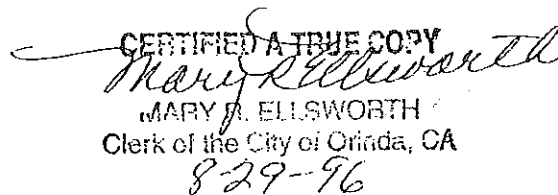 CERTIFIED A TRUE COPY
Mary R Ellsworth
MARY R. ELLSWORTH
Clerk of the City of Orinda, CA
8-29-96